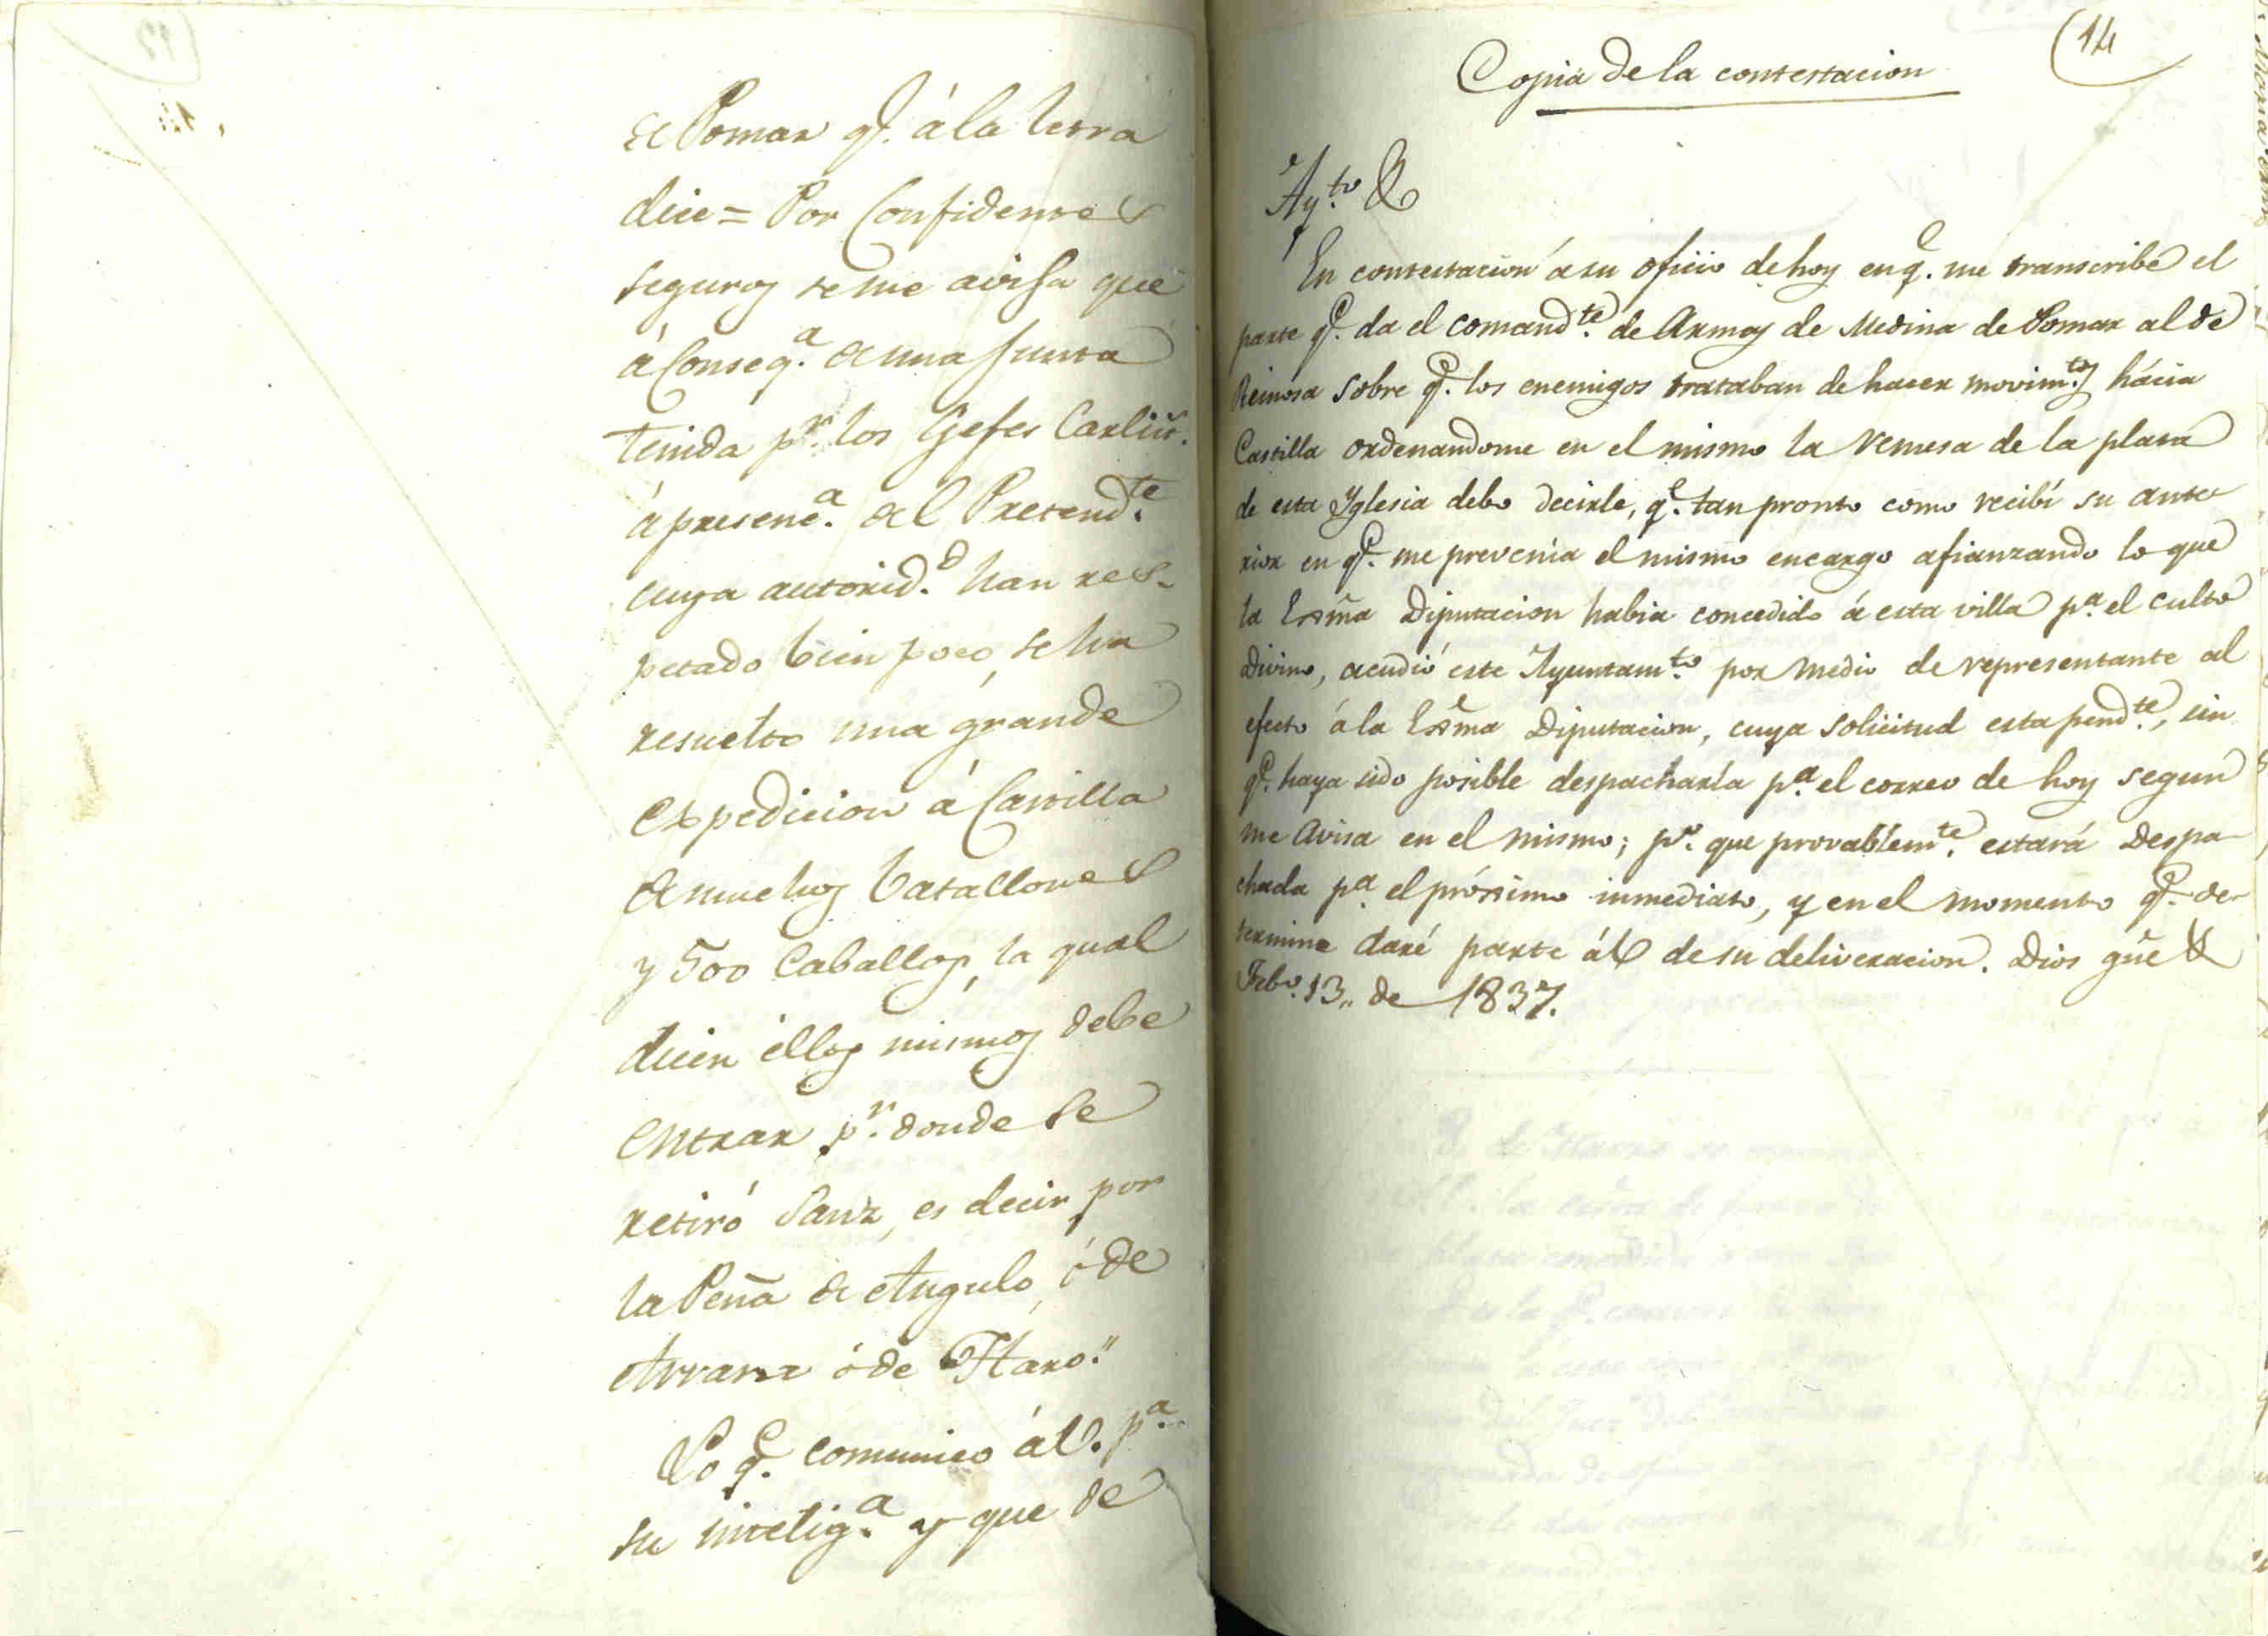 de Pomar q.e á la letra
dice = Por Confidentes
seguros se me avisa que
á Conseq.a de una Junta
tenida p.r los Gefes Carlist.
á presenc.a del Pretend.te
cuya autorid.d han res-
petado bien poco, se ha
resuelto una grande
expedicion á Castilla
de muchos batallones
y 500 Caballos, la qual
dicen éllos mismos debe
entrar p.r donde se
retiró Sanz, es decir por
la Peña de Angulo, ó de
ó de Haro."
Lo q.e comunico á V. p.a
su intelig.a y que de
(14
Copia de la contestacion
Ay.to &
En contestacion á su oficio de hoy en q.e me transcribe el
parte q.e da el comand.te de Armas de Medina de Pomar al de
Reinosa sobre q.e los enemigos trataban de hacer movim.tos hácia
Castilla ordenandome en el mismo la remesa de la plata
de esta Yglesia debo decirle, q.e tan pronto como recibí su ante
rior en q.e me prevenia el mismo encargo afianzando lo que
la Exma Diputacion habia concedido á esta villa p.a el culto
Divino, acudió este Ayuntam.to por medio de representante al
efecto á la Exma Diputacion, cuya solicitud esta pend.te, sin
q.e haya sido posible despacharla p.a el correo de hoy segun
me avisa en el mismo; p.o que provablem.te estará despa-
chada p.a el próximo inmediato, y en el momento q.e de-
termine daré parte á V de su deliveracion. Dios gue &
Feb.o 13,, de 1837.